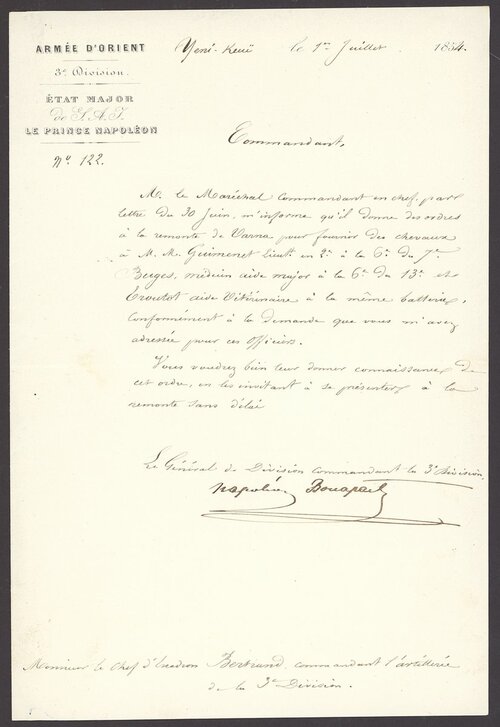 ARMÉE D'ORIENT
3e Division.
ÉTAT MAJOR
de S.A.I.
LE PRINCE NAPOLÉON
No. 122.
Yeni-Keuï le 1er Juillet 1854.
Commandant,
M. le Maréchal Commandant en chef, par
lettre du 30 Juin, m'informe qu'il donne des ordres
à la remonte de Varna pour fournir des chevaux
à M. M. Guimenet Lieutt en 2d à la 6e du 7e
Buges, médecin aide major à la 6e du 13e et
Eroutot aide Vétérinaire à la même batterie,
conformément à la demande que vous m'avez
adressée pour ces Officiers.
Vous voudrez bien leur donner connaissance de
cet ordre, en les invitant à se présenter à la
remonte sans délai
Le Général de Division commandant la 3e Division,
Napoléon Bonaparte
Monsieur le Chef d'Escadron Bertrand, commandant l'artillerie
de la 3e Division.